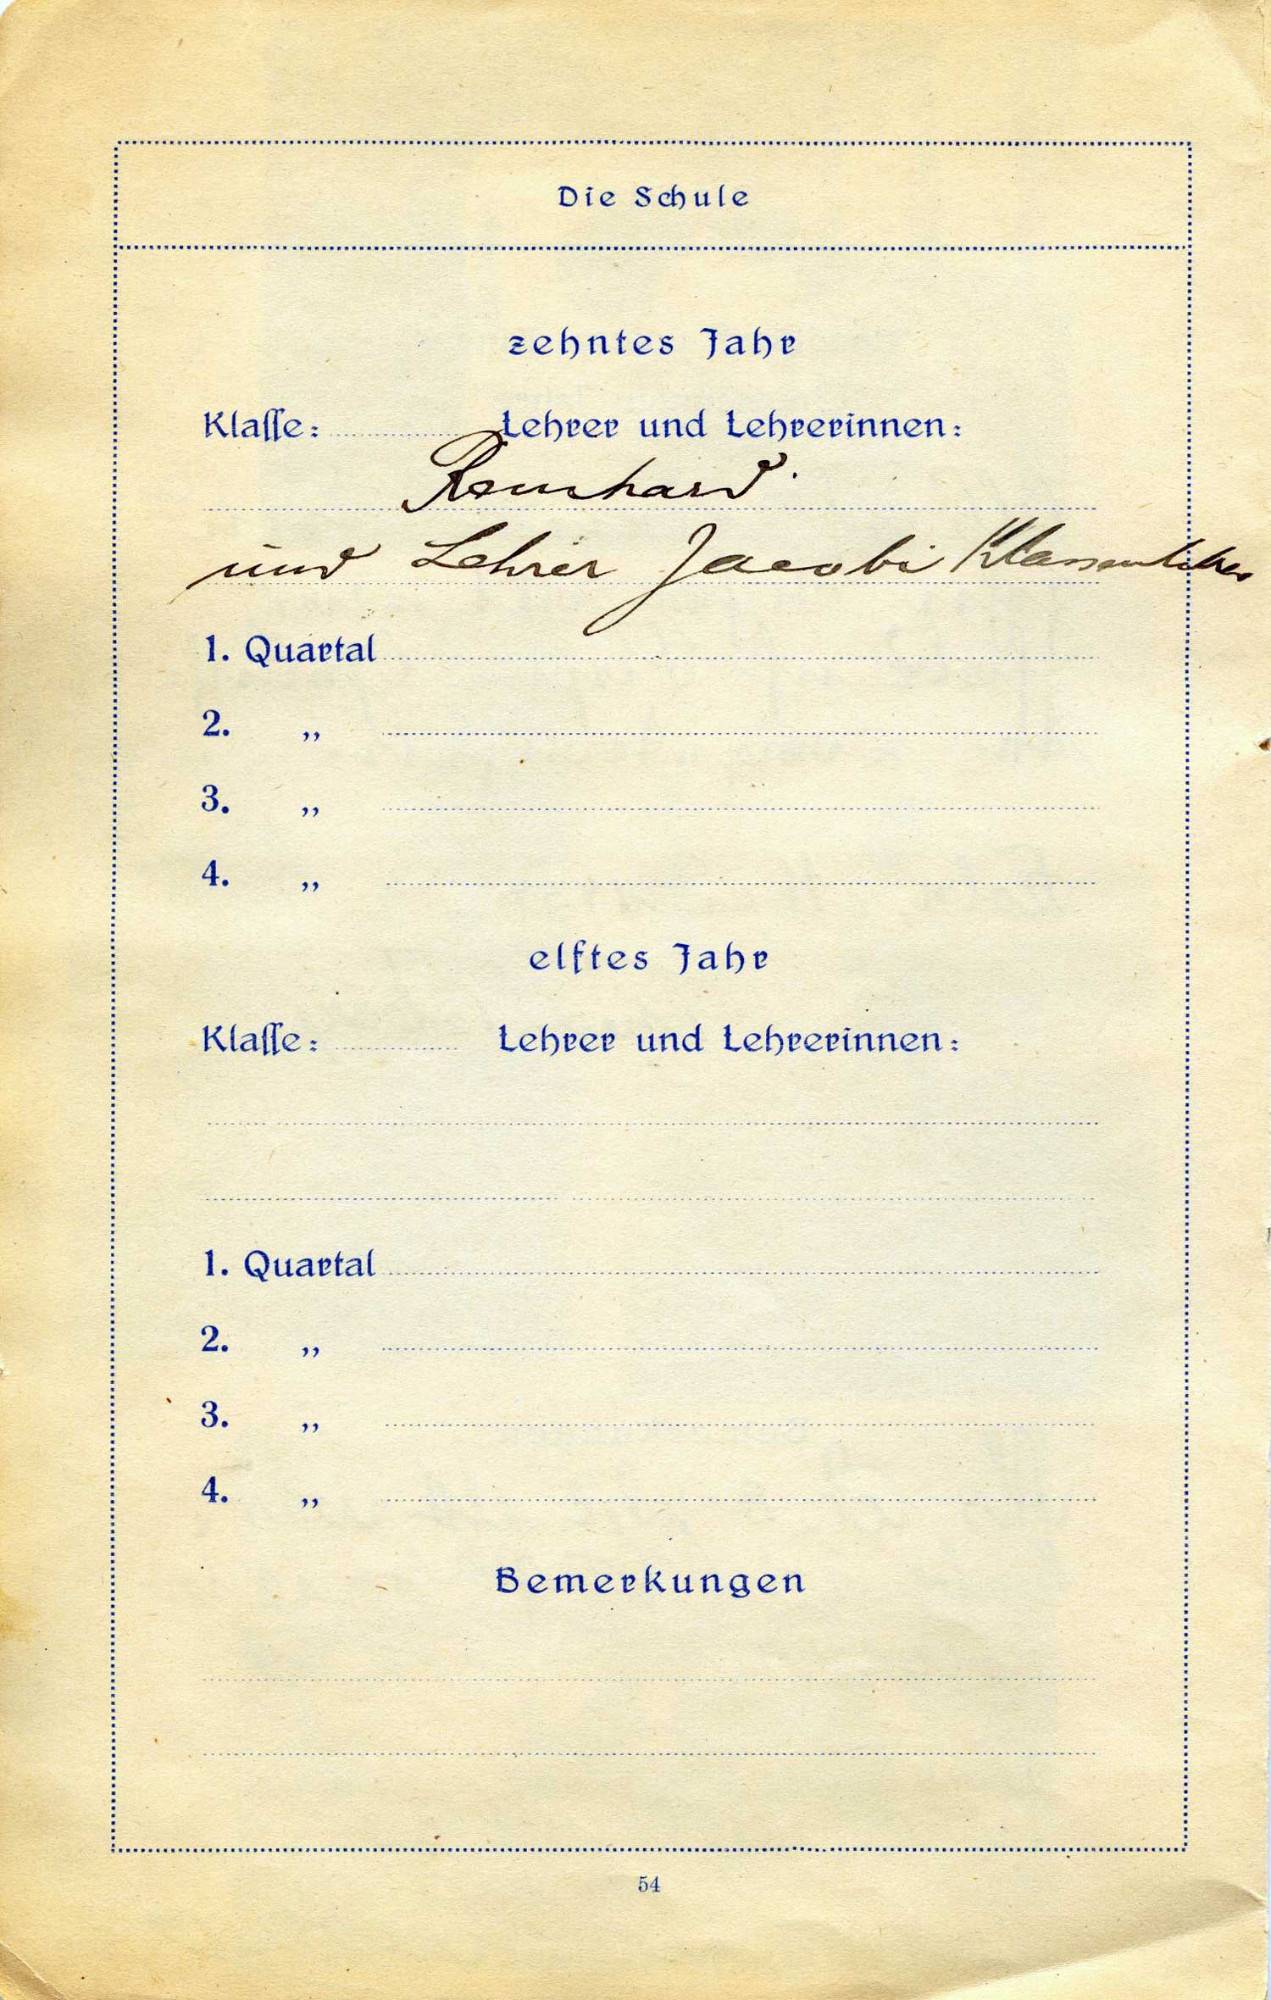 Die Schule
zehntes Jahr
Klasse: Lehrer und Lehrerinnen:
Reinhard.
und Lehrer Jacobi Klassenlehrer
1. Quartal
2. „
3. „
4. „
elftes Jahr
Klasse: Lehrer und Lehrerinnen:
1. Quartal
2. „
3. „
4. „
Bemerkungen
54